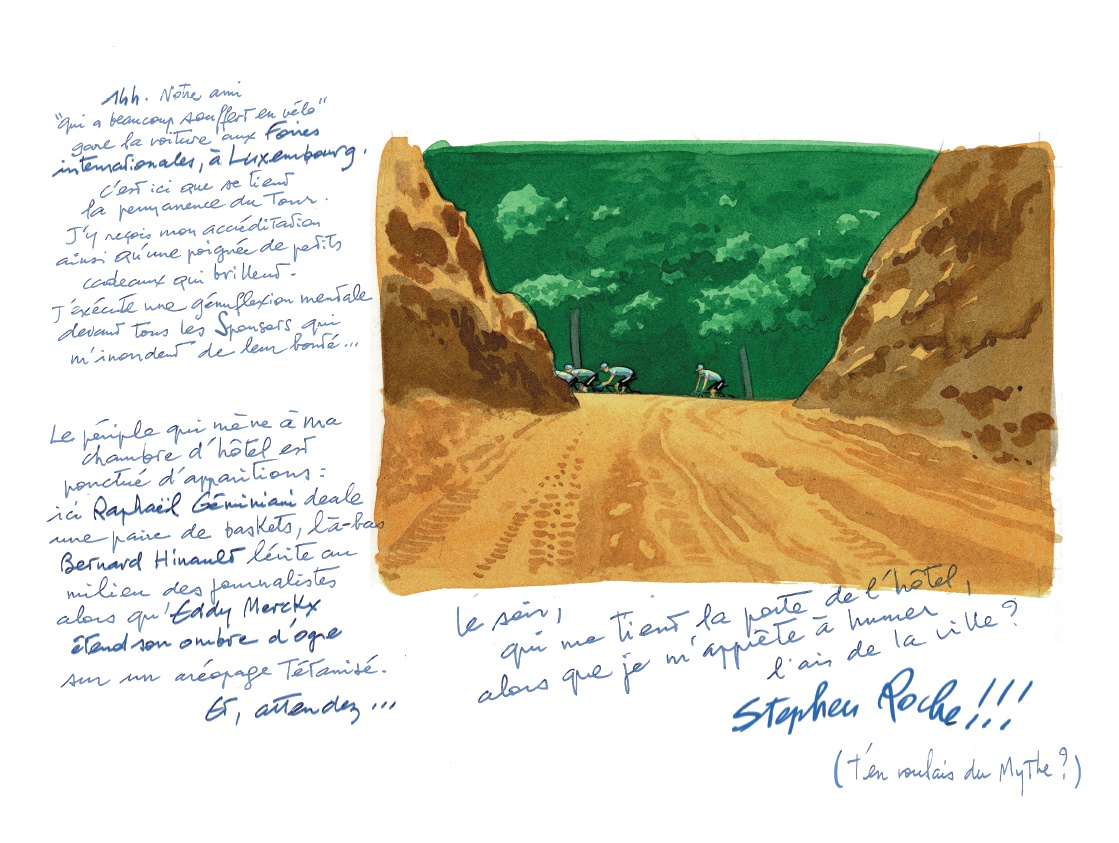 14h. Notre ami
"qui a beaucoup souffert en vélo"
gare la voiture aux Foires
internationales, à Luxembourg.
C'est ici que se tient
la permanence du Tour.
J'y reçois mon accréditation
ainsi qu'une poignée de petits
cadeaux qui brillent.
J'exécute une génuflexion mentale
devant tous les Sponsors qui
m'inondent de leur bonté...
Le périple qui mène à ma
chambre d'hôtel est
ponctué d'apparitions :
ici Raphaël Géminiani deale
une paire de baskets, là-bas
Bernard Hinault lévite au
milieu des journalistes
alors qu'Eddy Merckx
étend son ombre d'ogre
sur un aréopage tétanisé.
Et, attendez...
le soir,
qui me tient la porte de l'hôtel,
alors que je m'apprête à humer
l'air de la ville ?
Stephen Roche !!!
(t'en voulais du Mythe ?)